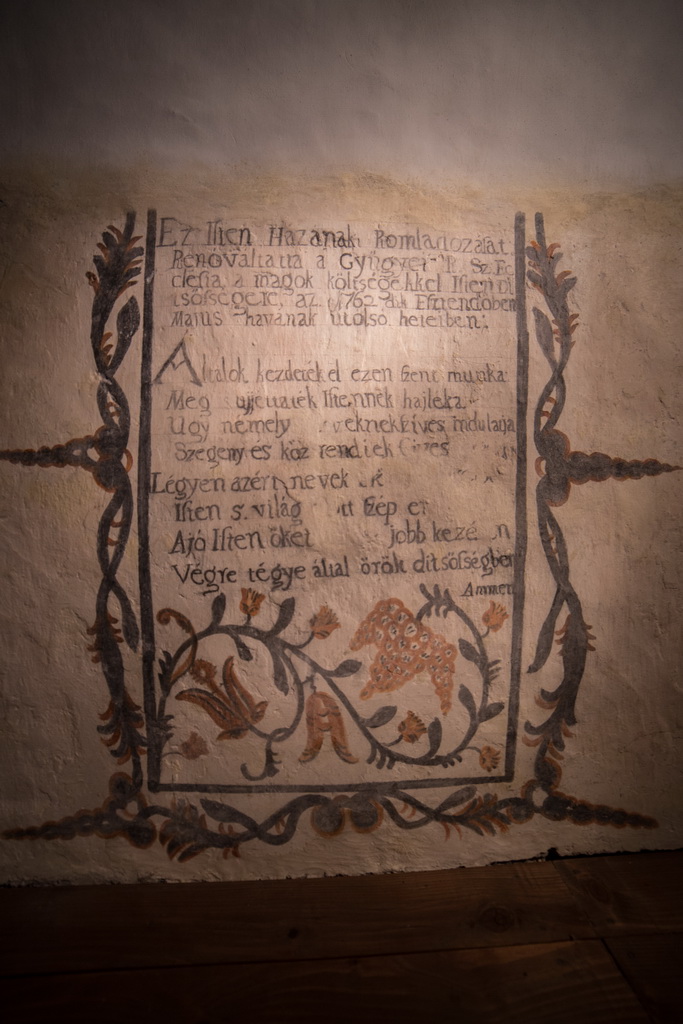 Ez Isten Házanak Romladozásat
Renováltatta a Gyügyei R. Sz. Ec
clesia, a magok költségekkel Isten Di
tsösségere, az 1762 dik Esztendöben
Majus havának utolsó heteiben.
Általok kezdetékel ezen szent munka
Meg ujjettaték Istennek hajleka
Ugy némely veknek Szives indulatja
Szegeny és köz rendüek Szives
Légyen azért nevek
Isten s. világ itt szép
A jó Isten öket jobb kezé n
Végre tégye által örök ditsösségben
Ammen